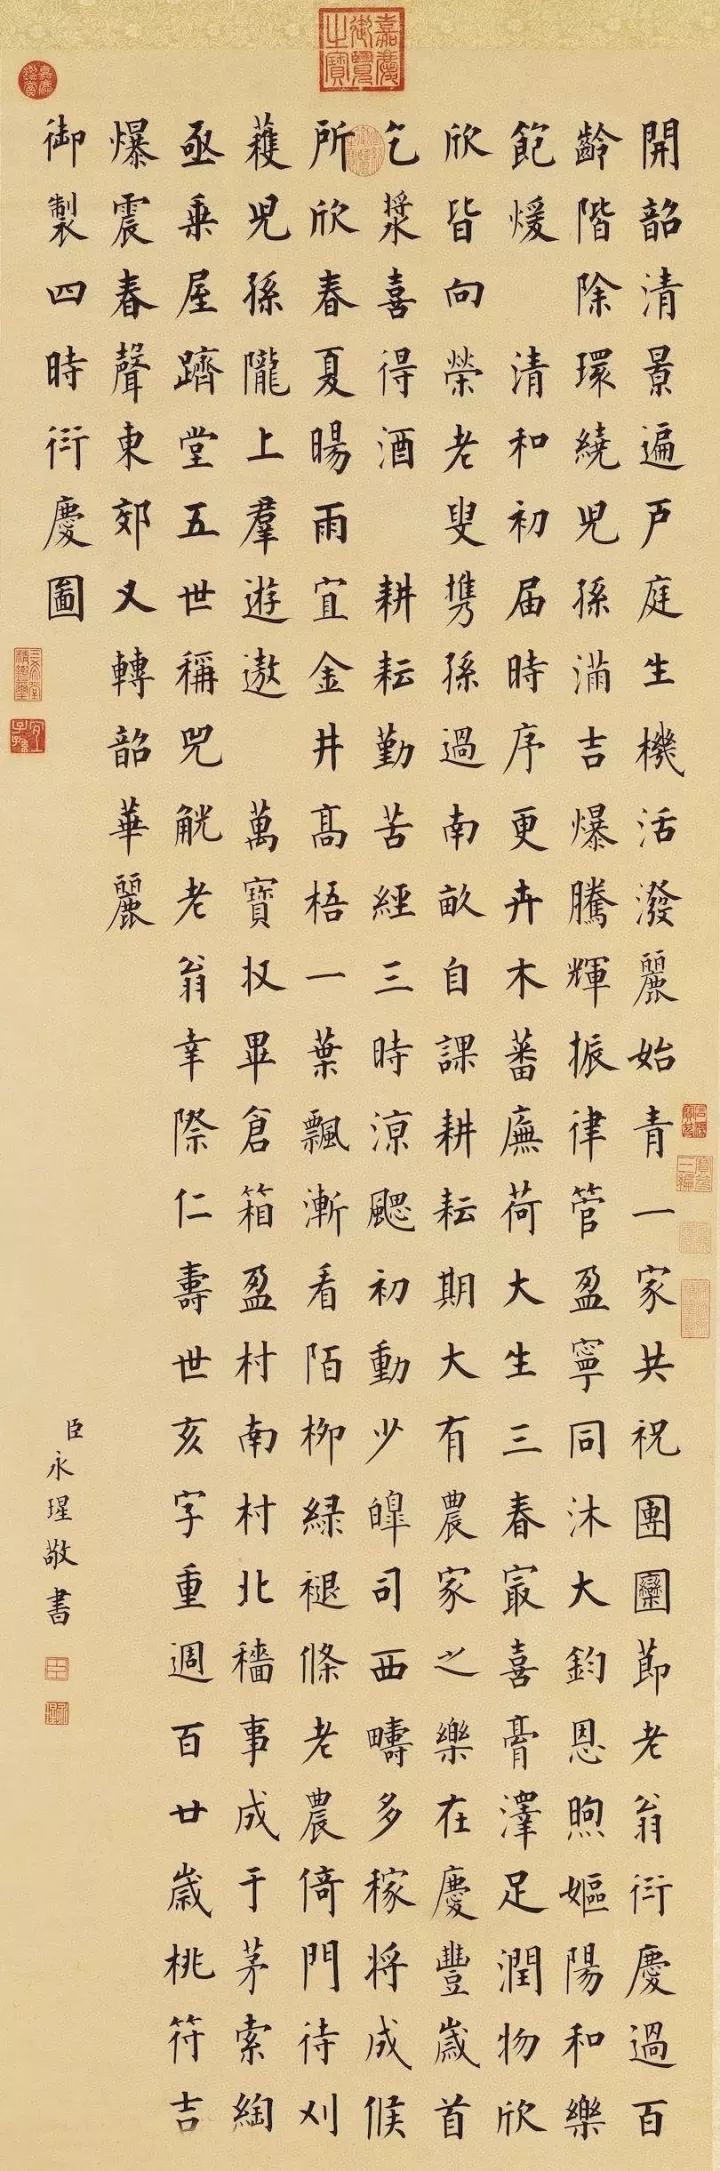 嘉慶御覽之寶
開韶清景遍戶庭生機活潑麗始青一家共祝團圞節老翁衍慶過百
齡階除環繞兒孫滿吉爆騰輝振律管盈寧同沐大鈞恩煦嫗陽和樂
飽煖 清和初届時序更卉木蕃廡荷大生三春冣喜膏澤足潤物欣
欣皆向榮老叟携孫過南畝自課耕耘期大有農家之樂在慶豐歲首
乞漿喜得酒 耕耘勤苦經三時涼颸初動少皥司西疇多稼将成候
所欣春夏暘雨宜金井高梧一葉飄漸看陌柳緑褪條老農倚門待刈
穫兒孫隴上羣遊遨 萬寶收畢倉箱盈村南村北穡事成于茅索綯
亟乗屋躋堂五世稱兕觥老翁幸際仁壽世亥字重週百廿歲桃符吉
爆震春聲東郊又轉韶華麗
御製四時衍慶圖
臣永瑆敬書
嘉慶鑑賞
三希堂精鑑璽
宜子孫